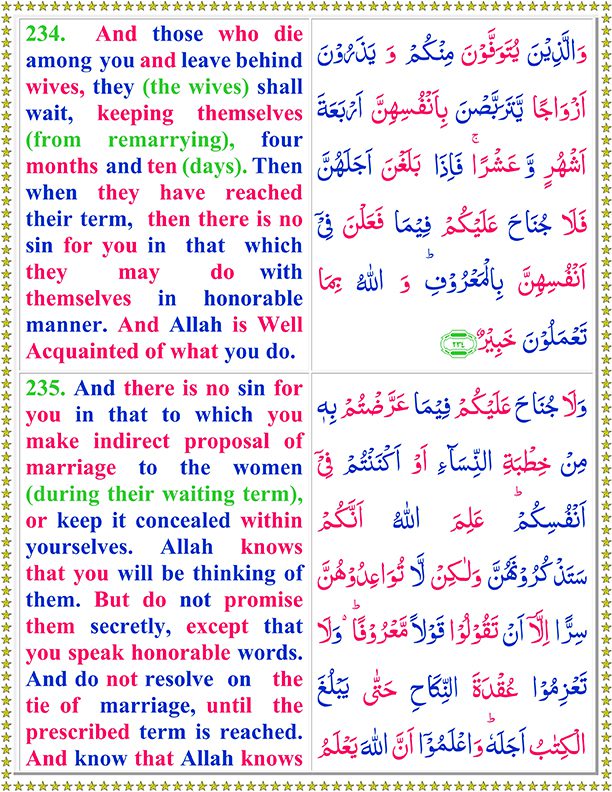 234. And those who die
among you and leave behind
wives, they (the wives) shall
wait, keeping themselves
(from remarrying), four
months and ten (days). Then
when they have reached
their term, then there is no
sin for you in that which
they may do with
themselves in honorable
manner. And Allah is Well
Acquainted of what you do.
وَالَّذِيْنَ يُتَوَفَّوْنَ مِنْكُمْ وَ يَذَرُوْنَ
اَزْوَاجًا يَّتَرَبَّصْنَ بِاَنْفُسِهِنَّ اَرْبَعَةَ
اَشْهُرٍ وَّ عَشْرًا ۚ فَاِذَا بَلَغْنَ اَجَلَهُنَّ
فَلَا جُنَاحَ عَلَيْكُمْ فِيْمَا فَعَلْنَ فِيْۤ
اَنْفُسِهِنَّ بِالْمَعْرُوْفِ ؕ وَ اللّٰهُ بِمَا
تَعْمَلُوْنَ خَبِيْرٌ ٢٣٤
235. And there is no sin for
you in that to which you
make indirect proposal of
marriage to the women
(during their waiting term),
or keep it concealed within
yourselves. Allah knows
that you will be thinking of
them. But do not promise
them secretly, except that
you speak honorable words.
And do not resolve on the
tie of marriage, until the
prescribed term is reached.
And know that Allah knows
وَلَا جُنَاحَ عَلَيْكُمْ فِيْمَا عَرَّضْتُمْ بِهٖ
مِنْ خِطْبَةِ النِّسَآءِ اَوْ اَكْنَنْتُمْ فِيْۤ
اَنْفُسِكُمْ ؕ عَلِمَ اللّٰهُ اَنَّكُمْ
سَتَذْكُرُوْنَهُنَّ وَلٰكِنْ لَّا تُوَاعِدُوْهُنَّ
سِرًّا اِلَّاۤ اَنْ تَقُوْلُوْا قَوْلًا مَّعْرُوْفًا ۬ؕ وَلَا
تَعْزِمُوْا عُقْدَةَ النِّكَاحِ حَتّٰى يَبْلُغَ
الْكِتٰبُ اَجَلَهٗ ؕ وَاعْلَمُوْۤا اَنَّ اللّٰهَ يَعْلَمُ